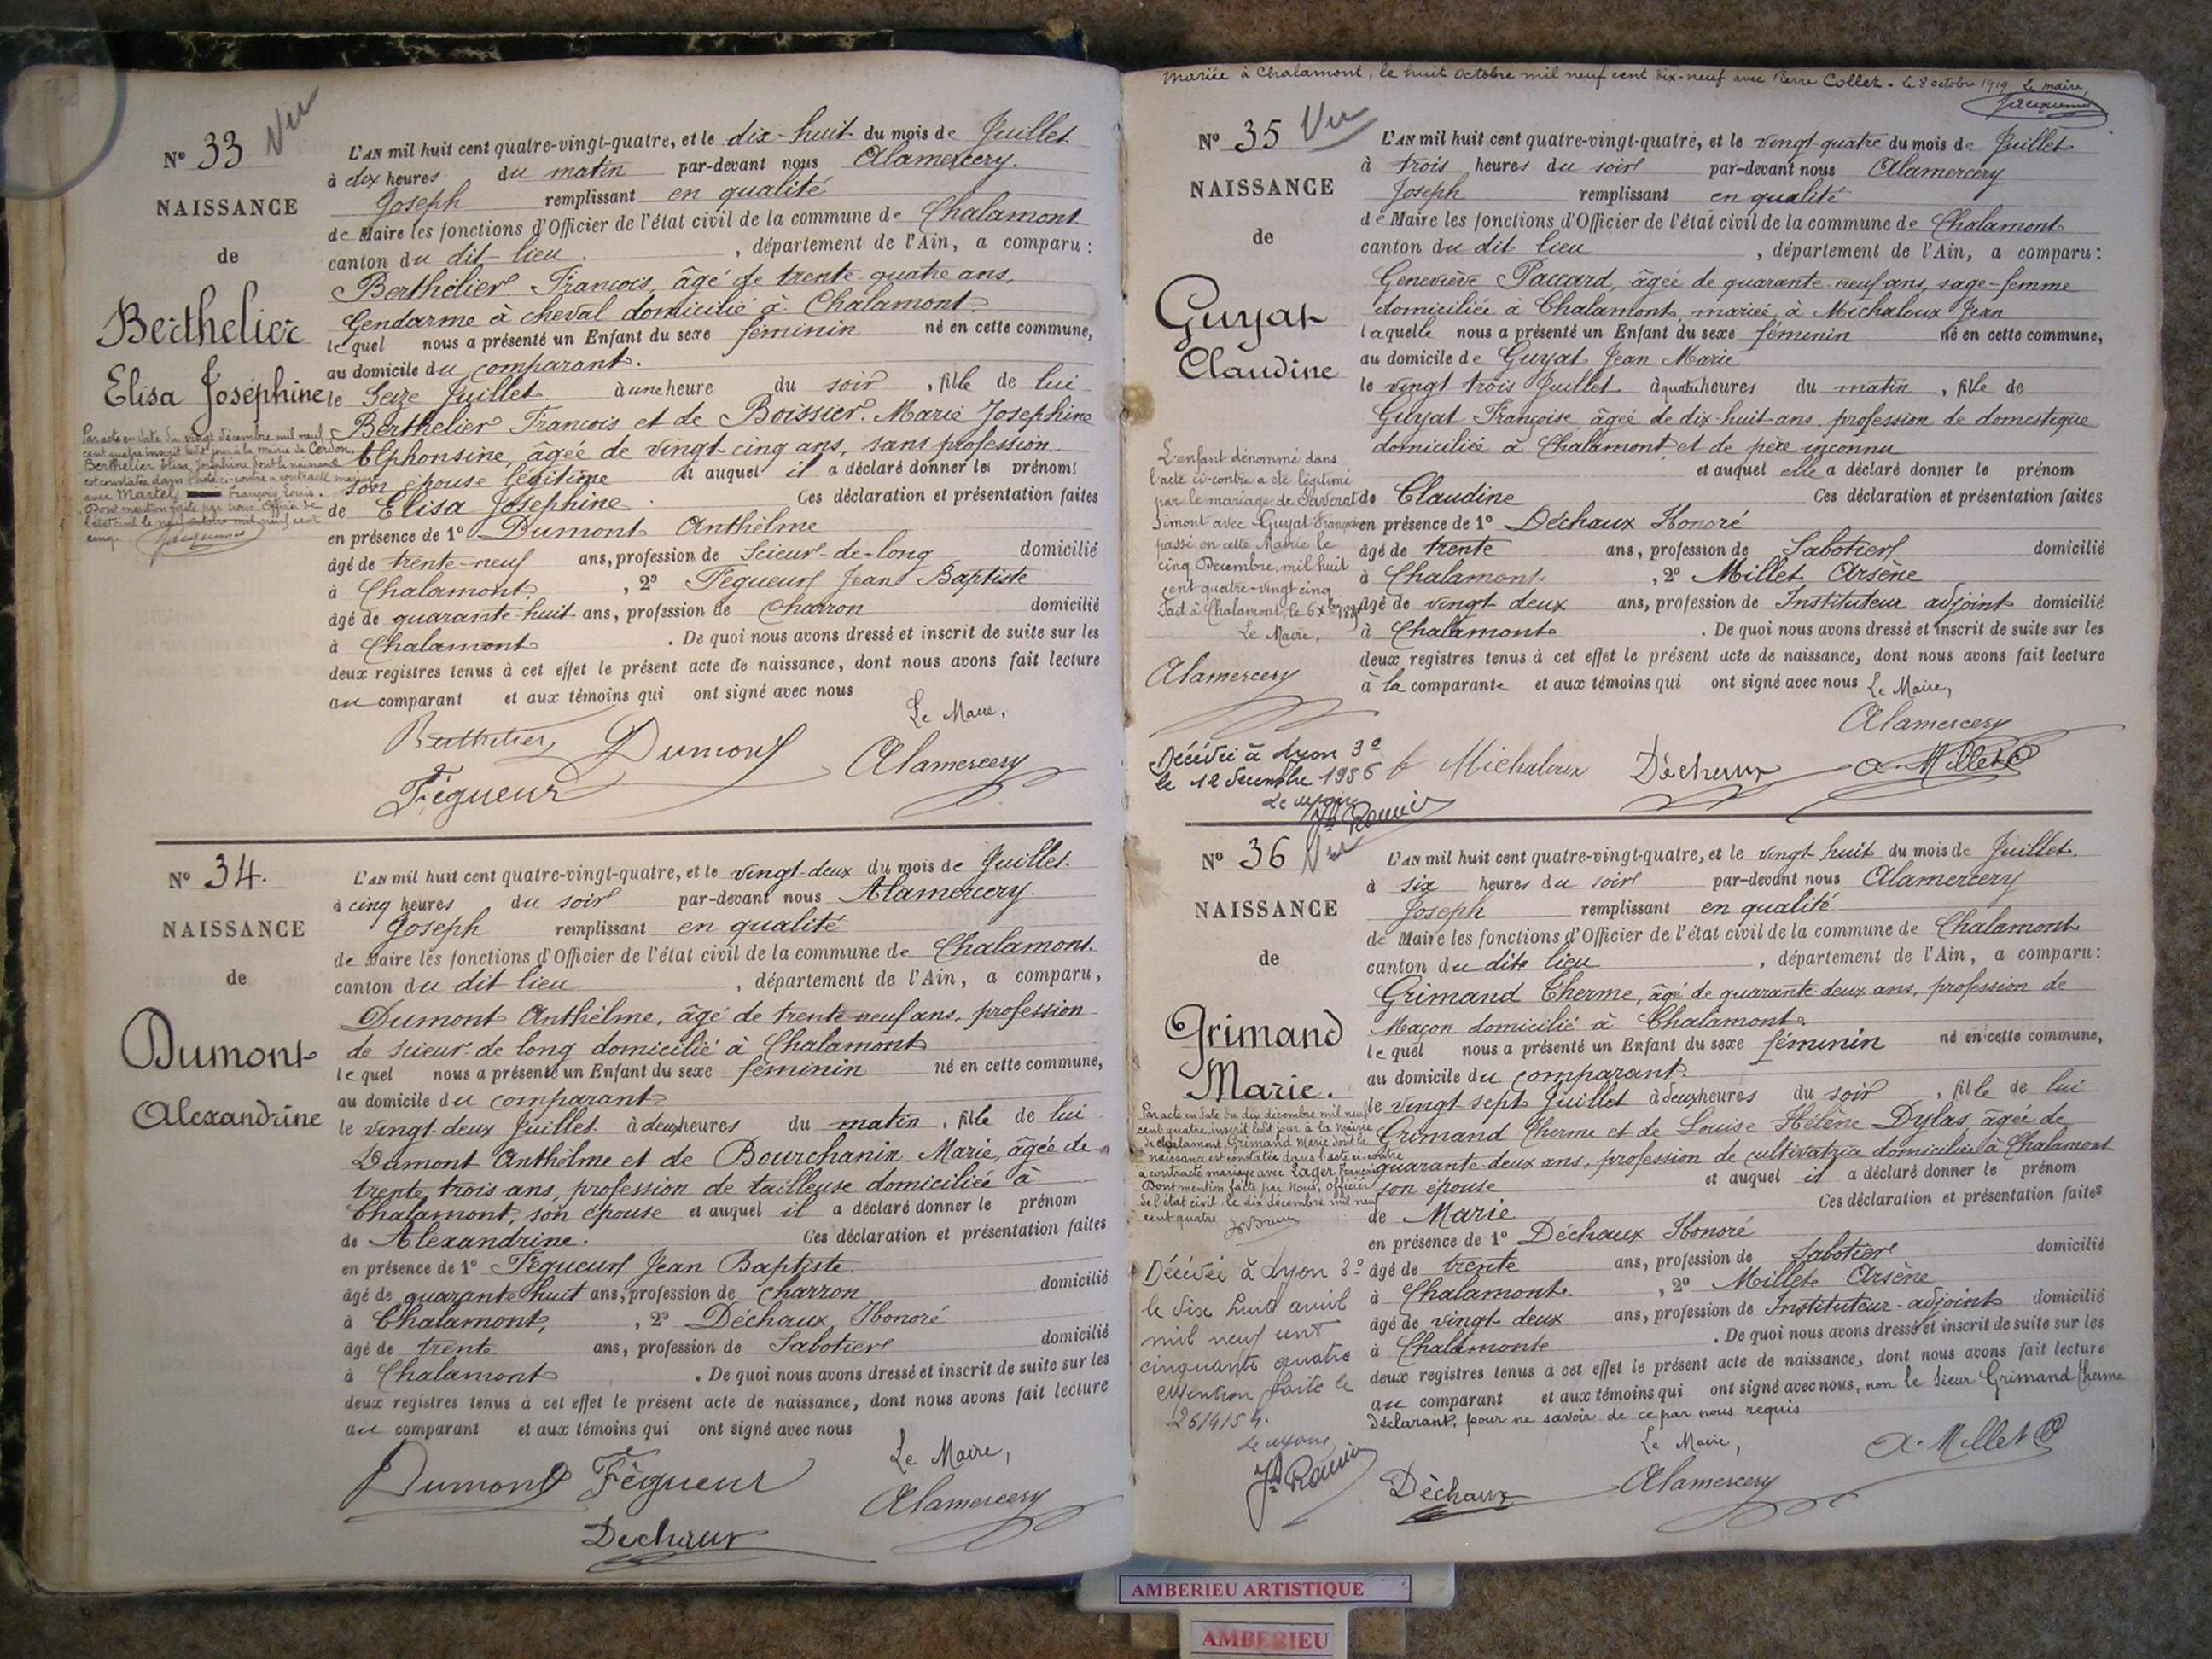 N° 33 Vu
NAISSANCE
de
Berthelier
Elisa Joséphine
Par acte en date du vingt décembre mil neuf
cent quatre inscrit ledit jour à la mairie de Cerdon,
Berthelier Elisa Joséphine dont la naissance
est constatée dans l'acte ci-contre a contracté mariage
avec Martel François Louis.
Dont mention faite par nous, Officier de
l'état civil le neuf octobre mil neuf cent
cinq.
Jacquemet
L'AN mil huit cent quatre-vingt-quatre, et le dix-huit du mois de Juillet
à dix heures du matin par-devant nous Alamercery.
Joseph remplissant en qualité
de Maire les fonctions d'Officier de l'état civil de la commune de Chalamont
canton du dit lieu, département de l'Ain, a comparu :
Berthelier François, âgé de trente-quatre ans,
Gendarme à cheval domicilié à Chalamont
lequel nous a présenté un Enfant du sexe féminin né en cette commune,
au domicile du comparant.
le Seize Juillet à une heure du soir, fille de lui
Berthelier François et de Boissier Marie Josephine
Alphonsine, âgée de vingt-cinq ans, sans profession
son épouse légitime et auquel il a déclaré donner les prénoms
de Elisa Joséphine. Ces déclaration et présentation faites
en présence de 1° Dumont Anthelme
âgé de trente-neuf ans, profession de Scieur-de-long domicilié
à Chalamont, 2° Fégueur Jean Baptiste
âgé de quarante huit ans, profession de Charron domicilié
à Chalamont. De quoi nous avons dressé et inscrit de suite sur les
deux registres tenus à cet effet le présent acte de naissance, dont nous avons fait lecture
au comparant et aux témoins qui ont signé avec nous
Le Maire,
Berthelier Dumont Alamercery
Fégueur
N° 34.
NAISSANCE
de
Dumont
Alexandrine
L'AN mil huit cent quatre-vingt-quatre, et le vingt-deux du mois de Juillet.
à cinq heures du soir par-devant nous Alamercery.
Joseph remplissant en qualité
de Maire les fonctions d'Officier de l'état civil de la commune de Chalamont.
canton du dit lieu, département de l'Ain, a comparu,
Dumont Anthelme, âgé de trente-neuf ans, profession
de scieur-de long domicilié à Chalamont
lequel nous a présenté un Enfant du sexe féminin né en cette commune,
au domicile du comparant
le vingt-deux Juillet à deux heures du matin, fille de lui
Dumont Anthelme et de Bourchanin Marie, âgée de
trente trois ans, profession de tailleuse domiciliée à
Chalamont, son épouse et auquel il a déclaré donner le prénom
de Alexandrine. Ces déclaration et présentation faites
en présence de 1° Fégueur Jean Baptiste
âgé de quarante huit ans, profession de Charron domicilié
à Chalamont, 2° Déchaux Honoré
âgé de trente ans, profession de Sabotier domicilié
à Chalamont. De quoi nous avons dressé et inscrit de suite sur les
deux registres tenus à cet effet le présent acte de naissance, dont nous avons fait lecture
au comparant et aux témoins qui ont signé avec nous
Le Maire,
Dumont Fégueur Alamercery
Dechaux
Mariée à Chalamont, le huit Octobre mil neuf cent dix-neuf avec Pierre Collet. Le 8 octobre 1919 Le maire,
Jacquemet
N° 35 Vu
NAISSANCE
de
Guyat
Claudine
L'enfant dénommé dans
l'acte ci-contre a été légitimé
par le mariage de Saverat
Simont avec Guyat Françoise
passé en cette Mairie le
cinq Décembre, mil huit
cent quatre-vingt cinq
Fait à Chalamont, le 6 Xbre 1885
Le Maire,
Alamercery
Décédée à Lyon 3e
le 12 décembre 1956
Le Maire
Jh Rouvier
L'AN mil huit cent quatre-vingt-quatre, et le vingt quatre du mois de Juillet
à trois heures du soir par-devant nous Alamercery
Joseph remplissant en qualité
de Maire les fonctions d'Officier de l'état civil de la commune de Chalamont
canton du dit lieu, département de l'Ain, a comparu :
Geneviève Paccard, âgée de quarante-neuf ans, sage-femme
domiciliée à Chalamont, mariée à Michaloux Jean
laquelle nous a présenté un Enfant du sexe féminin né en cette commune,
au domicile de Guyat Jean Marie
le vingt trois Juillet à quatre heures du matin, fille de
Guyat Françoise âgée de dix-huit ans profession de domestique
domiciliée à Chalamont et de père inconnu
et auquel elle a déclaré donner le prénom
de Claudine Ces déclaration et présentation faites
en présence de 1° Déchaux Honoré
âgé de trente ans, profession de Sabotier domicilié
à Chalamont, 2° Millet Arsène
âgé de vingt deux ans, profession de Instituteur adjoint domicilié
à Chalamont. De quoi nous avons dressé et inscrit de suite sur les
deux registres tenus à cet effet le présent acte de naissance, dont nous avons fait lecture
à la comparante et aux témoins qui ont signé avec nous Le Maire,
Alamercery
f Michaloux Déchaux A. Millet
N° 36 Vu
NAISSANCE
de
Grimand
Marie.
Par acte en date du dix décembre mil neuf
cent quatre, inscrit ledit jour à la Mairie
de Chalamont, Grimand Marie dont la
naissance est constatée dans l'acte ci-contre
a contracté mariage avec Lager François
Dont mention faite par Nous, Officier
de l'état civil le dix décembre mil neuf
cent quatre
Décédée à Lyon 3e
le dix huit avril
mil neuf cent
cinquante quatre
Mention faite le
26/4/54.
Le Maire
Jh Rouvier
L'AN mil huit cent quatre-vingt-quatre, et le vingt huit du mois de Juillet.
à six heures du soir par-devant nous Alamercery
Joseph remplissant en qualité
de Maire les fonctions d'Officier de l'état civil de la commune de Chalamont
canton du dit lieu, département de l'Ain, a comparu :
Grimand Therme, âgé de quarante-deux ans, profession de
Maçon domicilié à Chalamont.
lequel nous a présenté un Enfant du sexe féminin né en cette commune,
au domicile du comparant.
le vingt-sept Juillet à deux heures du soir, fille de lui
Grimand Therme et de Louise Hélène Dylas, âgée de
quarante-deux ans, profession de cultivatrice domiciliée à Chalamont
son épouse et auquel il a déclaré donner le prénom
de Marie Ces déclaration et présentation faites
en présence de 1° Déchaux Honoré
âgé de trente ans, profession de Sabotier domicilié
à Chalamont, 2° Millet Arsène
âgé de vingt deux ans, profession de Instituteur-adjoint domicilié
à Chalamont. De quoi nous avons dressé et inscrit de suite sur les
deux registres tenus à cet effet le présent acte de naissance, dont nous avons fait lecture
au comparant et aux témoins qui ont signé avec nous, non le sieur Grimand Therme
déclarant, pour ne savoir de ce par nous requis
Le Maire,
Déchaux Alamercery A. Millet
AMBERIEU ARTISTIQUE
AMBERIEU